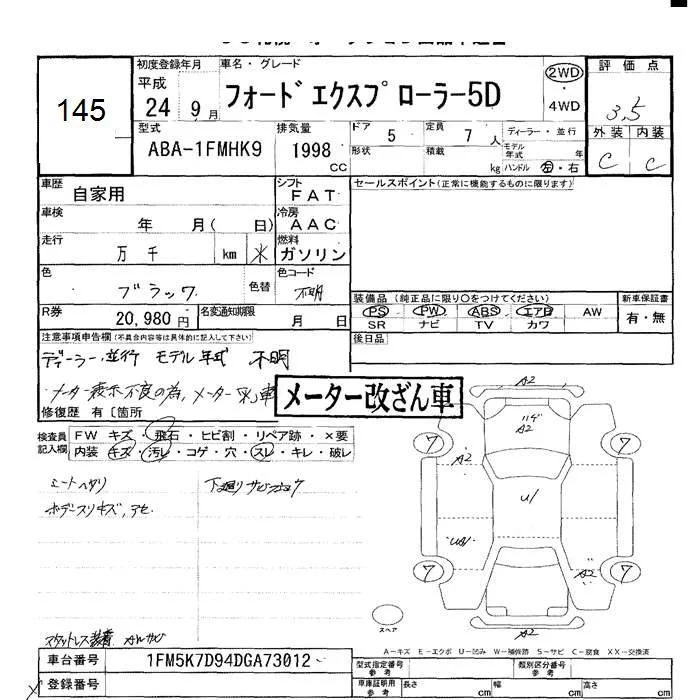 145
初度登録年月
平成
24 9月
車名・グレード
フォード エクスプローラー5D
2WD
4WD
評価点
3.5
外装 内装
C C
型式
ABA-1FMHK9
排気量
1998
CC
ドア
5
形状
定員
7 人
積載
kg
ディーラー・並行
モデル年式 年
ハンドル 左・右
車歴
自家用
シフト
FAT
車検
年 月( 日)
冷房
AAC
走行
万 千 km
燃料
ガソリン
色
ブラック
色替
色コード
不明
R券
20,980円
名変通知期限
月 日
セールスポイント(正常に機能するものに限ります)
装備品(純正品に限り〇をつけてください)
PS PW ABS エアB AW
SR ナビ TV カワ
新車保証書
有・無
後日品
注意事項申告欄(不具合内容等は具体的に記入して下さい)
ディーラー、並行 モデル年式 不明
メーター表示不良の為、メーター
メーター改ざん車
修復歴 有〔箇所
検査員
記入欄
FW キズ・飛石・ヒビ割・リペア跡・×要
内装 キズ・汚レ・コゲ・穴・スレ・キレ・破レ
シートヘタリ
下廻りサビ
ボデースリキズ,
スタットレス装着
A2
ハゲ
A2
7
7
A2
U1
A2
7
7
A2
スペア
A－キズ E－エクボ U－凹み W－補修跡 S－サビ C－腐食 XX－交換済
車台番号
1FM5K7D94DGA73012
登録番号
型式指定番号
参考
類別区分番号
参考
車庫証明用
参考
長さ cm
幅 cm
高さ cm